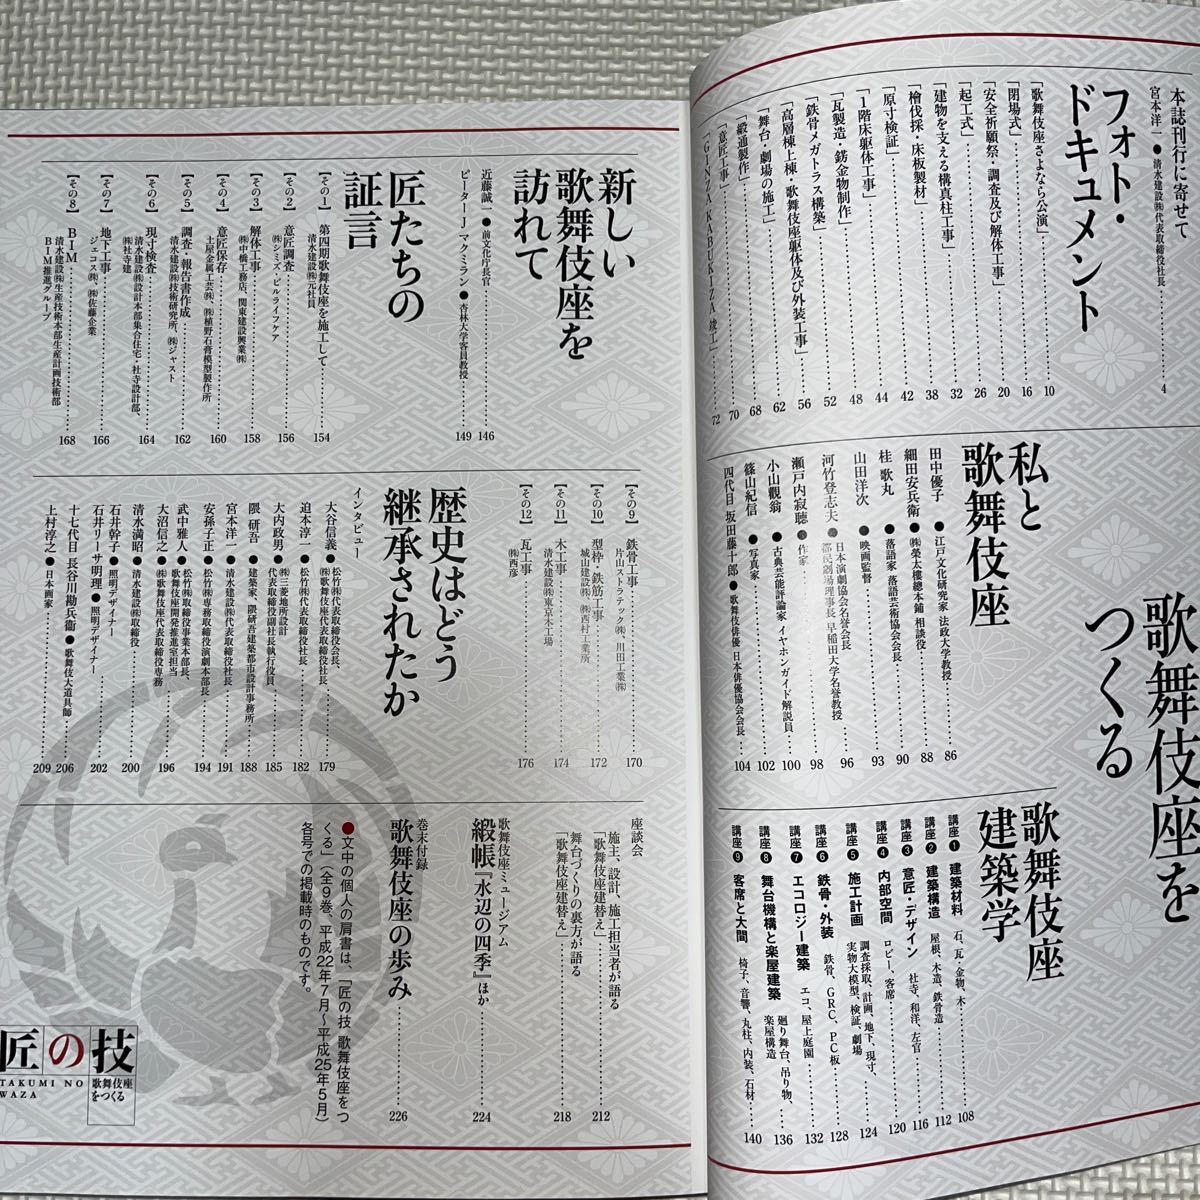 歌舞伎座を
つくる
本誌刊行に寄せて
宮本洋一●清水建設㈱代表取締役社長……4
フォト・
ドキュメント
「歌舞伎座さよなら公演」……10
「閉場式」……16
「安全祈願祭・調査及び解体工事」……20
「起工式」……26
「建物を支える構真柱工事」……32
「檜伐採・床板製材」……38
「原寸検証」……42
「1階床躯体工事」……44
「瓦製造・錺金物制作」……48
「鉄骨メガトラス構築」……52
「高層棟上棟・歌舞伎座躯体及び外装工事」……56
「舞台・劇場の施工」……62
「緞通製作」……68
「意匠工事」……70
「GINZA KABUKIZA 竣工」……72
私と
歌舞伎座
田中優子●江戸文化研究家 法政大学教授……86
細田安兵衛●㈱榮太樓總本鋪 相談役……88
桂 歌丸●落語家 落語芸術協会会長……90
山田洋次●映画監督……93
河竹登志夫●日本演劇協会名誉会長……96
都民劇場理事長 早稲田大学名誉教授
瀬戸内寂聴●作家……98
小山觀翁●古典芸能評論家 イヤホンガイド解説員……100
篠山紀信●写真家……102
四代目 坂田藤十郎●歌舞伎俳優 日本俳優協会会長……104
歌舞伎座
建築学
講座❶ 建築材料 石、瓦・金物、木……108
講座❷ 建築構造 屋根、木造、鉄骨造……112
講座❸ 意匠・デザイン 社寺、和洋、左官……116
講座❹ 内部空間 ロビー、客席……120
講座❺ 施工計画 調査採取、計画、地下、現寸、
実物大模型、検証、劇場……124
講座❻ 鉄骨・外装 鉄骨、GRC、PC板……128
講座❼ エコロジー建築 エコ、屋上庭園……132
講座❽ 舞台機構と楽屋建築 廻り舞台、吊り物、
楽屋構造……136
講座❾ 客席と大間 椅子、音響、丸柱、内装、石材……140
新しい
歌舞伎座を
訪れて
近藤誠一●前文化庁長官……146
ピーター・J・マクミラン●杏林大学客員教授……149
匠たちの
証言
【その1】第四期歌舞伎座を施工して……154
清水建設㈱元社員
【その2】意匠調査……156
㈱シミズ・ビルライフケア
【その3】解体工事……158
㈱中橋工務店、関東建設興業㈱
【その4】意匠保存……160
土屋金属工芸㈱、㈱植野石膏模型製作所
【その5】調査・報告書作成……162
清水建設㈱技術研究所、㈱ジャスト
【その6】現寸検査……164
清水建設㈱設計本部集合住宅・社寺設計部、
㈱社寺建
【その7】地下工事……166
ジェコス㈱、㈱佐藤企業
【その8】BIM……168
清水建設㈱生産技術本部生産計画技術部
BIM推進グループ
【その9】鉄骨工事……170
片山ストラテック㈱、川田工業㈱
【その10】型枠・鉄筋工事……172
城山建設㈱、㈱西村工業所
【その11】木工事……174
清水建設㈱東京木工場
【その12】瓦工事……176
㈱西彦
歴史はどう
継承されたか
インタビュー
大谷信義●松竹㈱代表取締役会長、
㈱歌舞伎座代表取締役社長……179
迫本淳一●松竹㈱代表取締役社長……182
大内政男●㈱三菱地所設計
代表取締役副社長執行役員……185
隈 研吾●建築家、隈研吾建築都市設計事務所……188
宮本洋一●清水建設㈱代表取締役社長……191
安孫子正●松竹㈱専務取締役演劇本部長……194
武中雅人●松竹㈱取締役事業本部長、
歌舞伎座開発推進室担当
大沼信之●㈱歌舞伎座代表取締役専務……196
清水満昭●清水建設㈱取締役……200
石井幹子●照明デザイナー
石井リーサ明理●照明デザイナー……202
十七代目 長谷川勘兵衛●歌舞伎大道具師……206
上村淳之●日本画家……209
座談会
施主、設計、施工担当者が語る
「歌舞伎座建替え」……212
舞台づくりの裏方が語る
「歌舞伎座建替え」……218
歌舞伎座ミュージアム
緞帳『水辺の四季』ほか……224
巻末付録
歌舞伎座の歩み……226
●文中の個人の肩書は、「匠の技 歌舞伎座をつ
くる」(全9巻、平成22年7月〜平成25年5月)
各号での掲載時のものです。
匠の技
TAKUMI NO
WAZA
歌舞伎座
をつくる